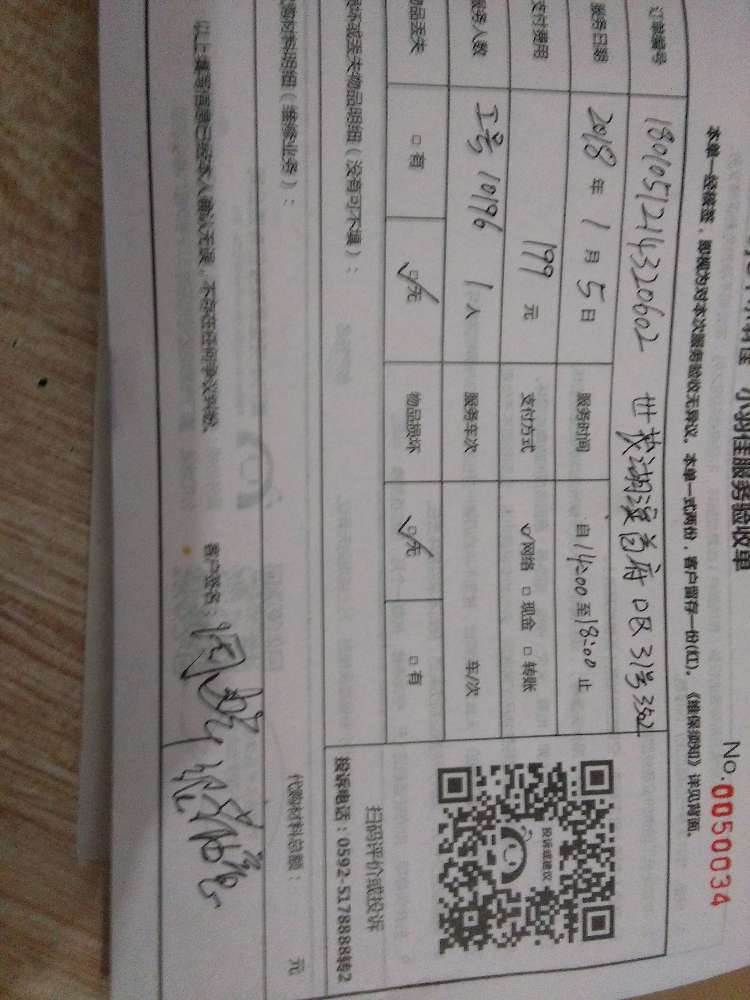 小羽佳服务验收单
No.0050034
本单一经核签，即视为对本次服务验收无异议。本单一式两份，客户留存一份(红)。《维保须知》详见背面。
订单编号 180105121432 0602 世茂湖滨首府 D区 31号 352
服务日期 2018 年 1 月 5 日 服务时间 自 14:00 至 18:00 止
支付费用 199 元 支付方式 网络 □ 现金 □ 转账
服务人数 工号 10196 1 人 服务车次 车/次
物品丢失 □ 有 □ 无 物品损坏 □ 无 □ 有
投诉或建议
扫码评价或投诉
投诉电话：0592-5178888转2
坏或丢失物品明细（没有可不填）：
购材料明细（维修业务）：
代购材料总额： 元
以上填写信息已经本人确认无误，不存在任何争议纠纷。 客户签名：